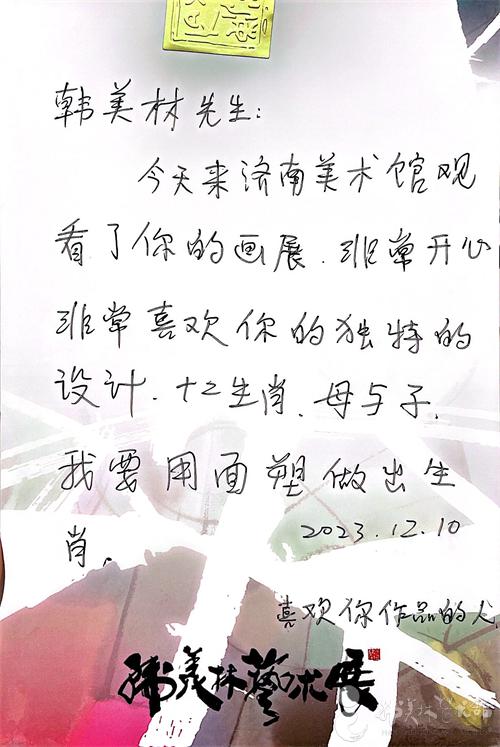 韩美林先生：
今天来济南美术馆观
看了你的画展．非常开心
非常喜欢你的独特的
设计．十二生肖．母与子．
我要用面塑做出生
肖．
2023.12.10
喜欢你作品的人．
韩美林艺术展
韩美林艺术部